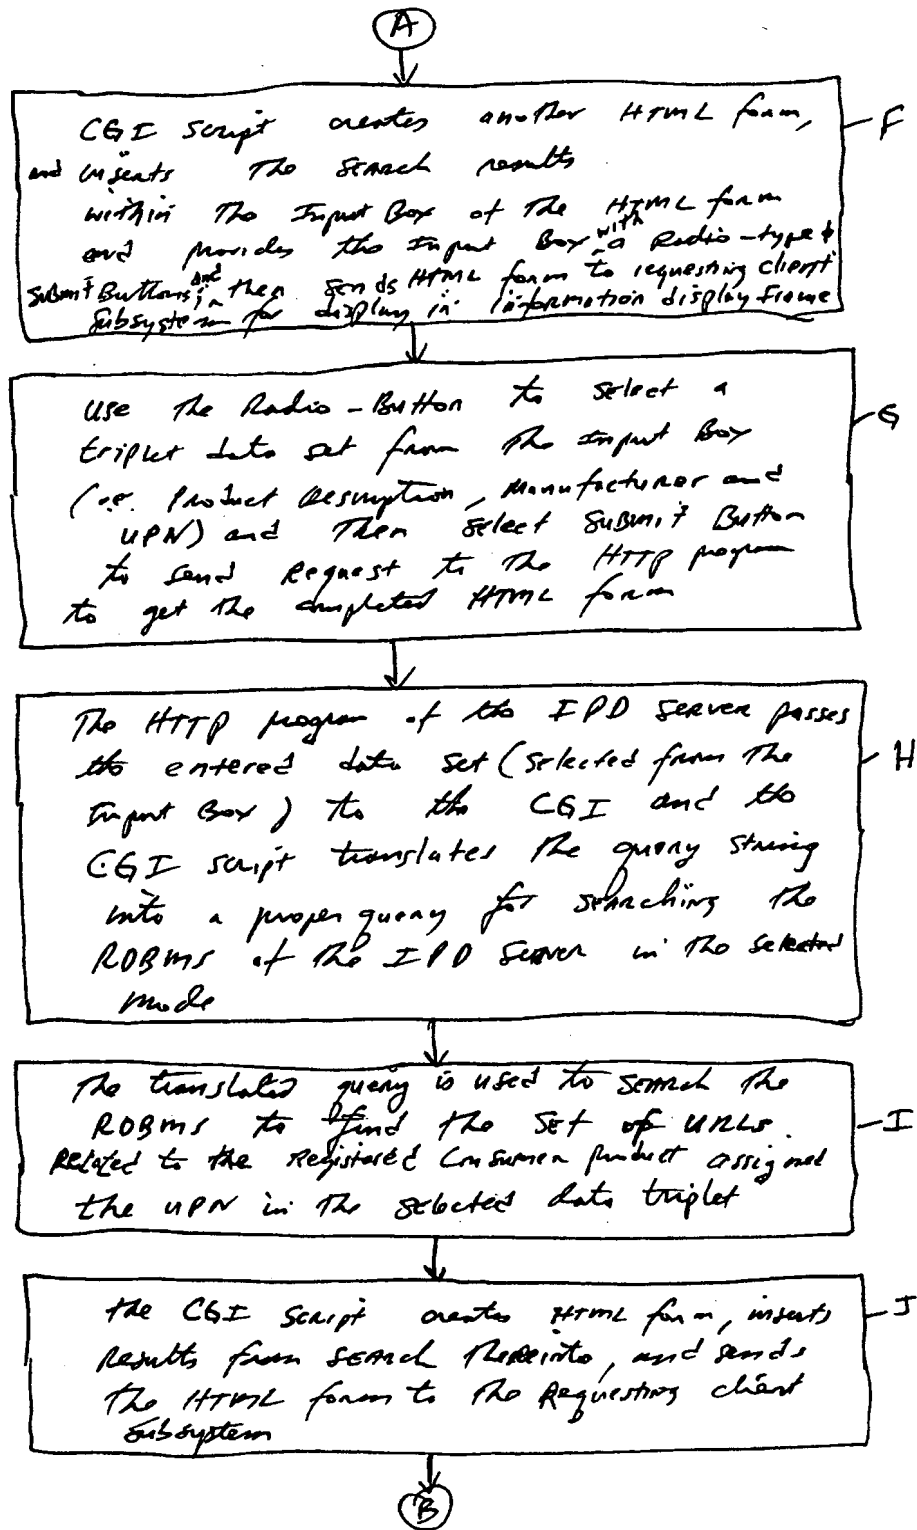 A
CGI Script creates another HTML form, F
and inserts the SEARCH results
within the Input Box of the HTML form
and provides the Input Box with a Radio-type &
Submit Buttons and then sends HTML form to requesting client
Subsystem for display in information display frame
Use the Radio-Button to select a
triplet data set from the Input Box G
(i.e. Product Description, Manufacturer and
UPN) and then select Submit Button
to send Request to the HTTP program
to get the completed HTML form
The HTTP program of the IPD Server passes
the entered data set (selected from the H
Input Box) to the CGI and the
CGI script translates the query string
into a proper query for searching the
RDBMS of the IPD Server in the selected
mode
The translated query is used to SEARCH the
RDBMS to find the SET of URLs I
Related to the Registered Consumer product assigned
the UPN in the selected data triplet
the CGI Script creates HTML form, inserts J
Results from SEARCH thereinto, and sends
the HTML form to the Requesting client
Subsystem
B